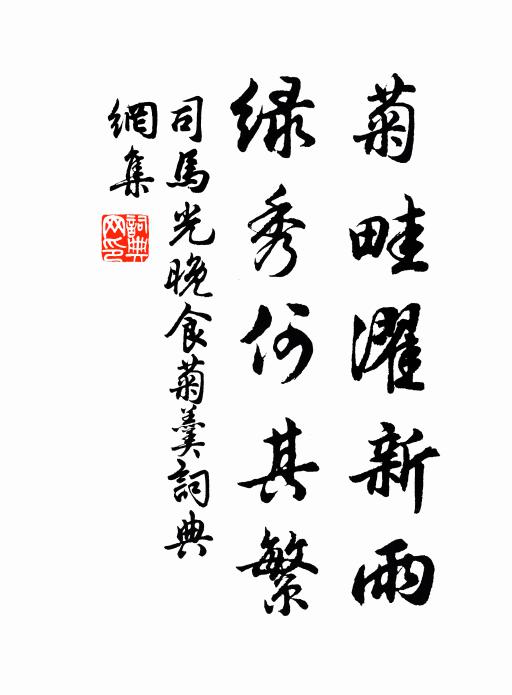 菊畦濯新雨
緑秀何其繁
司馬光晚食菊羹詞典
網集
詞典
网印